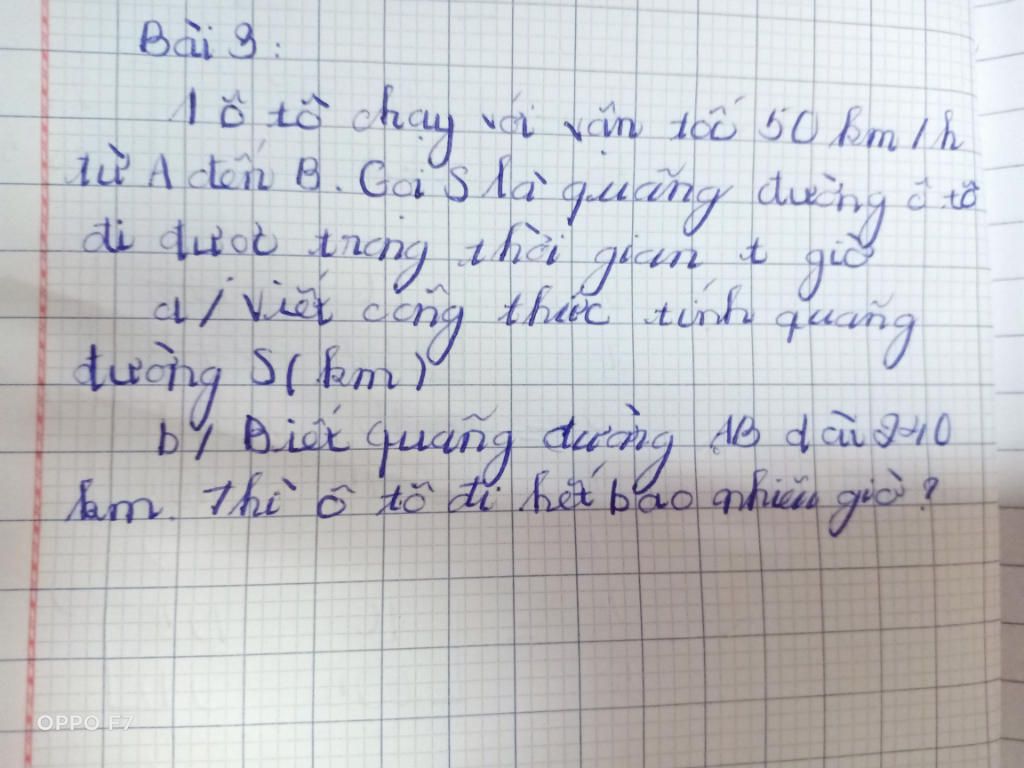 Bài 3:
1 ô tô chạy với vận tốc 50 km/h
từ A đến B. Gọi S là quãng đường ô tô
đi được trong thời gian t giờ
a/ Viết công thức tính quãng
đường S (km)
b/ Biết quãng đường AB dài 240
km. Thì ô tô đi hết bao nhiêu giờ?
OPPO F7